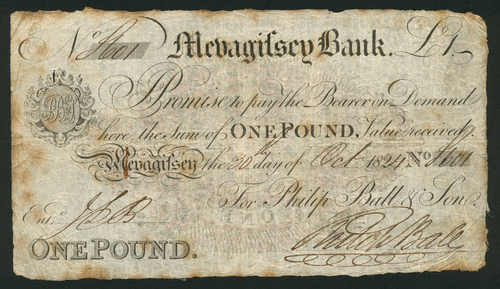 No. Mevagiſsey Bank. £1.
I Promise to pay the Bearer on Demand
here, the Sum of ONE POUND, Value received.
Mevagiſsey the 20th day of Oct 1824 No
For Philip Ball & Son.
Entd. JCB Philip Ball
ONE POUND.